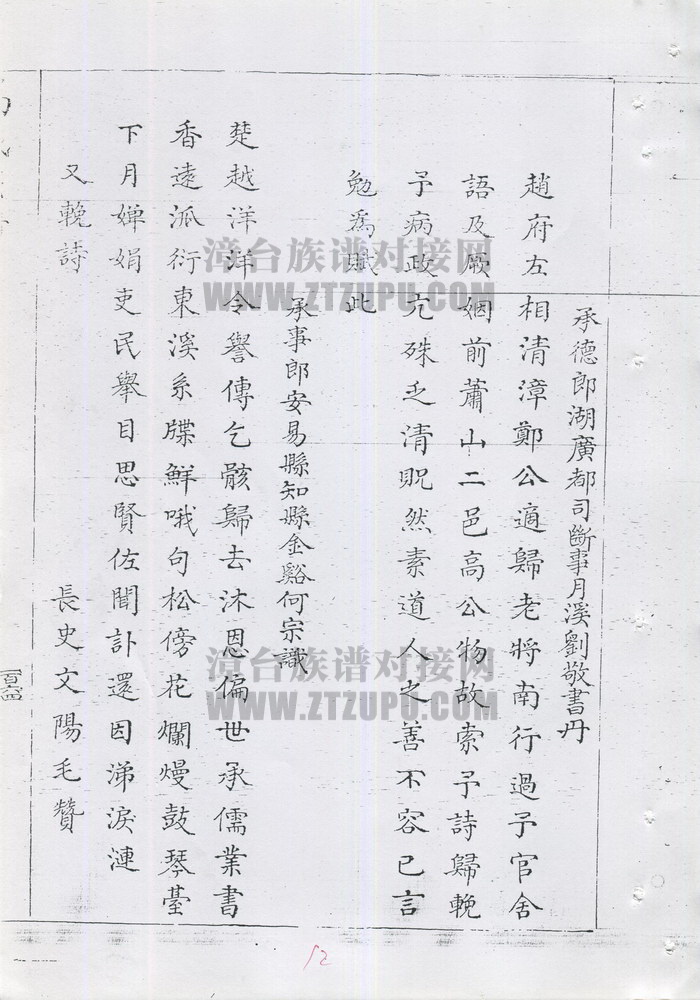 承德郎湖廣都司斷事月溪劉敬書丹
趙府左相清漳鄭公適歸老將南行過予官舍
語及厥姻前蕭山二邑高公物故索予詩歸輓
予病政冗殊乏清貺然素道人之善不容已言
勉為賦此
承事郎安易縣知縣金谿何宗識
楚越洋洋令譽傳乞骸歸去沐恩偏世承儒業書
香遠派衍東溪系牒鮮哦句松傍花爛熳鼓琴臺
下月嬋娟吏民舉目思賢佐聞訃還因涕淚漣
又輓詩
長史文陽毛贊
漳台族谱对接网
WWW.ZTZUPU.COM
漳台族谱对接网
WWW.ZTZUPU.COM
12